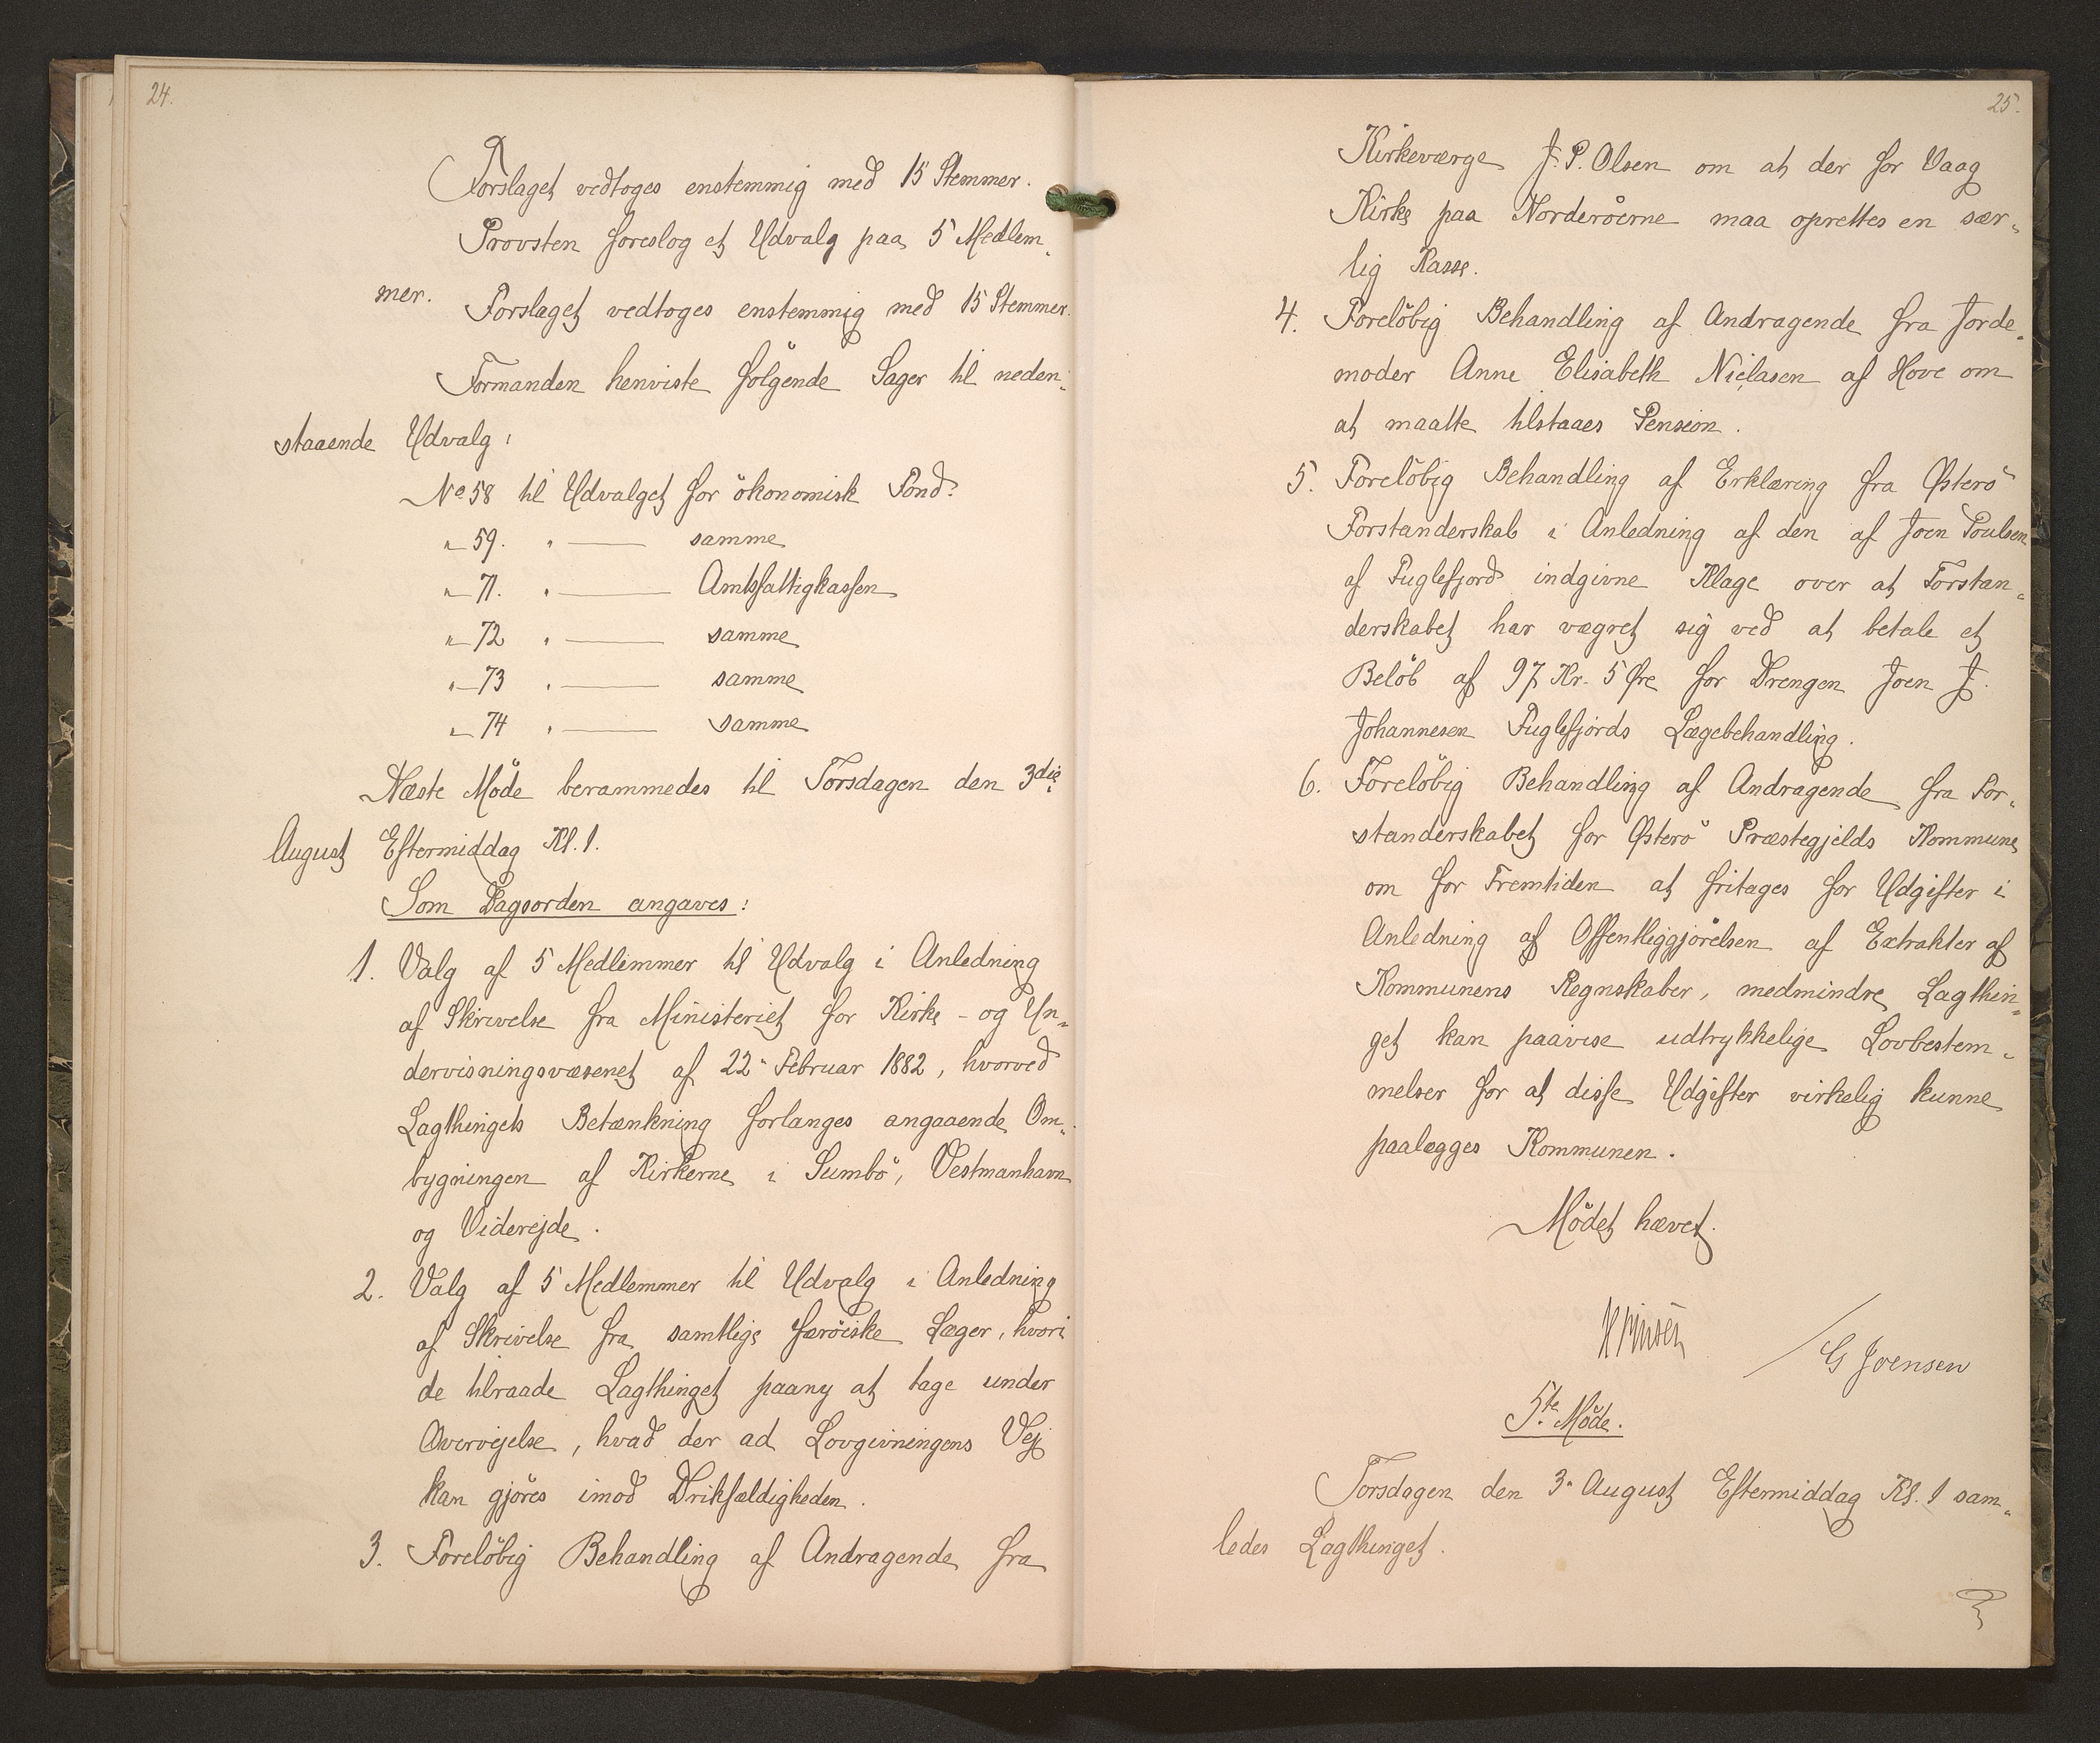 24.
Forslaget vedtoges enstemmig med 15 Stemmer.
Provsten foreslog et Udvalg paa 5 Medlem-
mer.
Forslaget vedtoges enstemmig med 15 Stemmer.
Formanden henviste følgende Sager til neden-
staaende Udvalg:
No 58 til Udvalget for økonomisk Fond.
" 59. " — samme
" 71. " — Amtsfattigkassen
" 72 " — samme
" 73 " — samme
" 74 " — samme
Næste Møde berammedes til Torsdagen den 3die
August Eftermiddag Kl. 1.
Som Dagsorden angaves:
1. Valg af 5 Medlemmer til Udvalg i Anledning
af Skrivelse fra Ministeriet for Kirke- og Un-
dervisningsvæsenet af 22. Februar 1882, hvorved
Lagthingets Betænkning forlanges angaaende Om-
bygningen af Kirkerne i Sumbø, Vestmanhavn
og Viderejde.
2. Valg af 5 Medlemmer til Udvalg i Anledning
af Skrivelse fra samtlige færøiske Læger, hvori
de tilraade Lagthinget paany at tage under
Overvejelse, hvad der ad Lovgivningens Vej
kan gjøres imod Drikfældigheden.
3. Foreløbig Behandling af Andragende fra
25.
Kirkeværge J. P. Olsen om at der for Vaag
Kirke paa Norderøerne maa oprettes en sær-
lig Kasse.
4. Foreløbig Behandling af Andragende fra Jorde-
moder Anne Elisabeth Nielasen af Hove om
at maatte tilstaaes Pension.
5. Foreløbig Behandling af Erklæring fra Østerø
Forstanderskab i Anledning af den af Joen Poulsen
af Fuglefjord indgivne Klage over at Forstan-
derskabet har vægret sig ved at betale et
Beløb af 97 Kr. 5 Øre for Drengen Joen J.
Johannesen Fuglefjords Lægebehandling.
6. Foreløbig Behandling af Andragende fra For-
standerskabet for Østerø Præstegjelds Kommune
om for Fremtiden at fritages for Udgifter i
Anledning af Offentliggjørelsen af Extrakter af
Kommunens Regnskaber, medmindre Lagthin-
get kan paavise udtrykkelige Lovbestem-
melser for at disse Udgifter virkelig kunne
paalægges Kommunen.
Mødet hævet.
G Joensen
5te Møde.
Torsdagen den 3. August Eftermiddag Kl. 1 sam-
ledes Lagthinget.